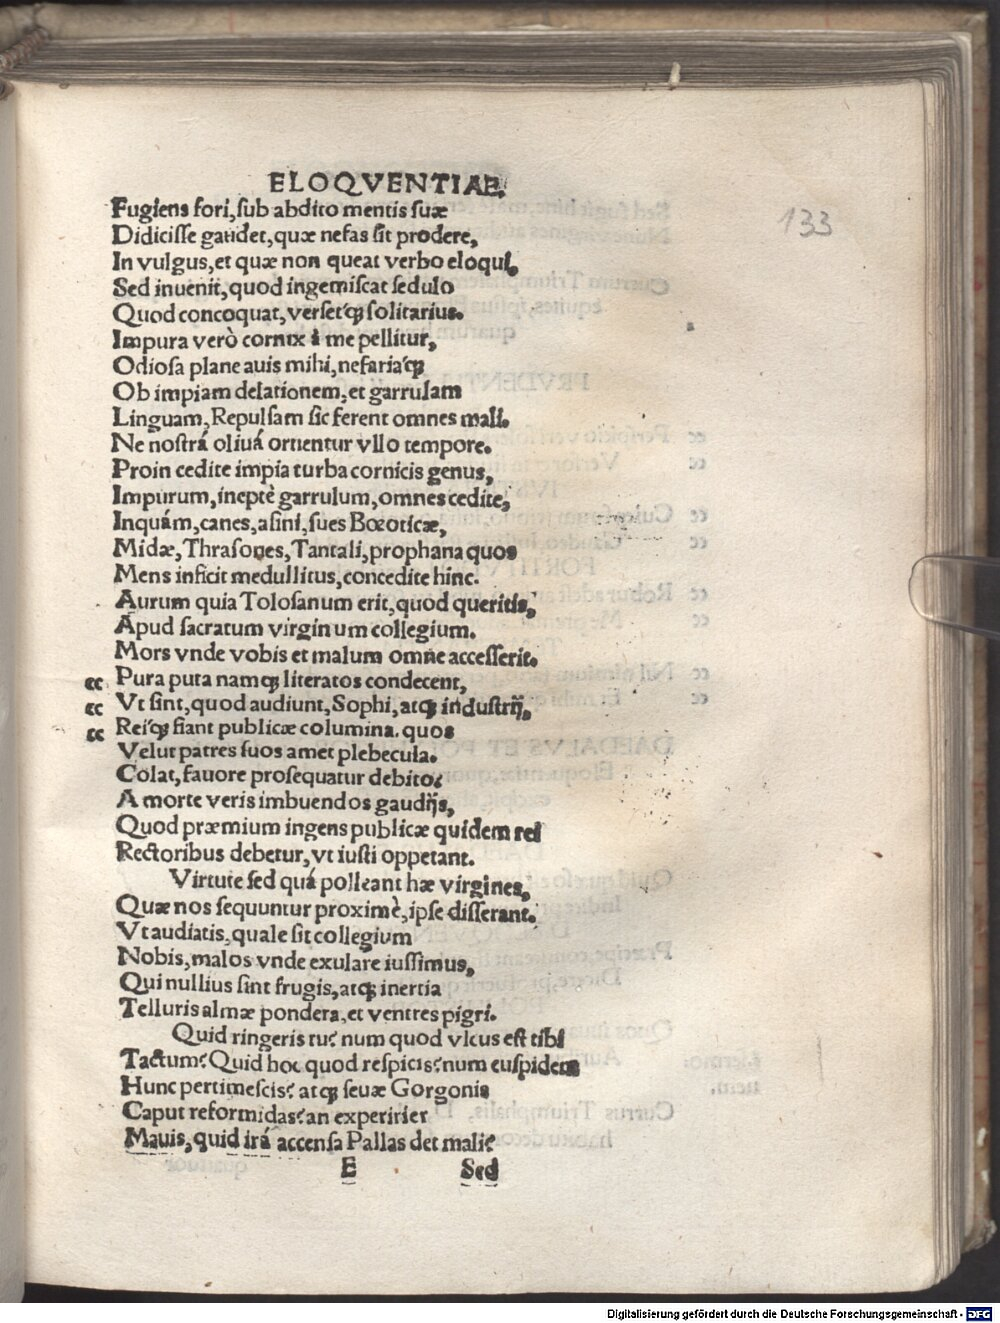 ELOQVENTIAE.
133
Fugiens fori, sub abdito mentis suæ
Didicisse gaudet, quæ nefas sit prodere,
In vulgus, et quæ non queat verbo eloqui,
Sed inuenit, quod ingemiscat sedulo
Quod concoquat, verset́q; solitarius.
Impura verò cornix à me pellitur,
Odiosa plane auis mihi, nefaria´q;
Ob impiam delationem, et garrulam
Linguam, Repulsam sic ferent omnes mali.
Ne nostrá oliuá ornentur vllo tempore.
Proin cedite impia turba cornicis genus,
Impurum, ineptè garrulum, omnes cedite,
Inquám, canes, asini, sues Bœoticæ,
Midæ, Thrasones, Tantali, prophana quos
Mens inficit medullitus, concedite hinc.
Aurum quia Tolosanum erit, quod queritis,
Apud sacratum virginum collegium.
Mors vnde vobis et malum omne accesserit.
cc Pura puta namq; literatos condecent,
cc Vt sint, quod audiunt, Sophi, atq; industrij,
cc Rei´q; fiant publicæ columina. quos
Velut patres suos amet plebecula.
Colat, fauore prosequatur debito:
A morte veris imbuendos gaudijs,
Quod præmium ingens publicæ quidem rei
Rectoribus debetur, vt iusti oppetant.
Virtute sed quá polleant hæ virgines,
Quæ nos sequuntur proximè, ipse disserant.
Vt audiatis, quale sit collegium
Nobis, malos vnde exulare iussimus,
Qui nullius sint frugis, atq; inertia
Telluris almæ pondera, et ventres pigri.
Quid ringeris tu? num quod vlcus est tibi
Tactum? Quid hoc quod respicis? num cuspidem
Hunc pertimescis? atq; seuæ Gorgonis
Caput reformidas? an experirier
Mauis, quid irá accensa Pallas det mali?
E Sed
Digitalisierung gefördert durch die Deutsche Forschungsgemeinschaft - DFG